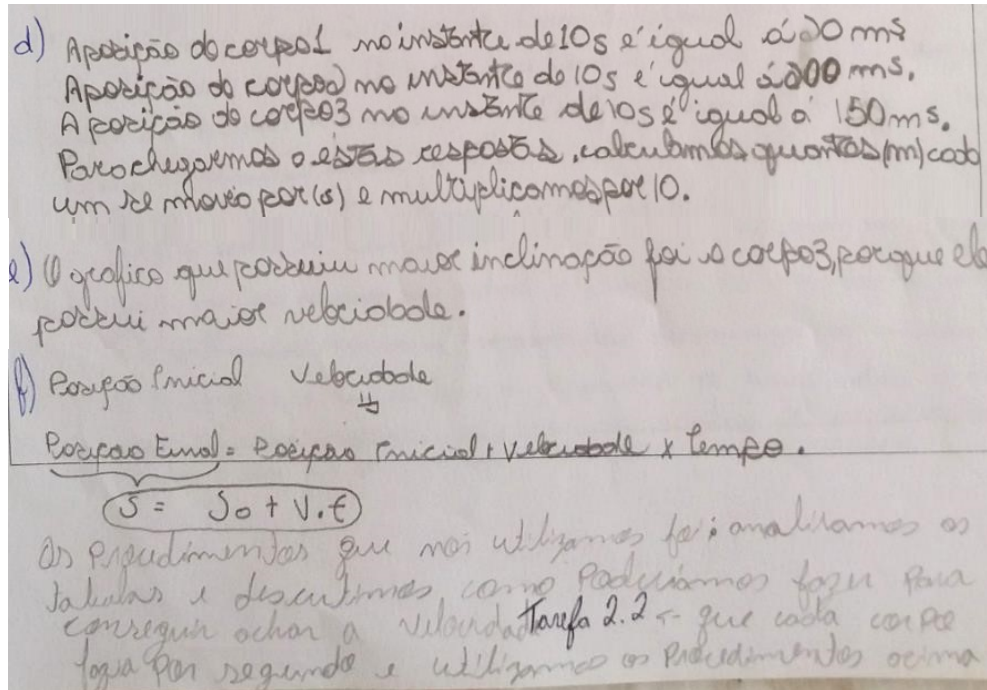 d) A posição do corpo1 no instante de 10s é igual á 20 ms
A posição do corpo2 no instante de 10s é igual á 200 ms.
A posição do corpo3 no instante de 10s é igual á 150ms.
Para chegarmos a estas respostas, calculamos quantos (m) cada
um se moveo por (s) e multiplicamos por 10.
e) O grafico que possuiu maior inclinação foi o corpo3, porque ele
possui maior velocidade.
f) Posição Inicial Velocidade
Posição Final = Posição Inicial + Velocidade x tempo.
S = So + V.t
Os procedimentos que nós utilizamos foi: analisamos as
tabelas e discutimos como poderiamos fazer para
conseguir achar a velocidade Tarefa 2.2 que cada corpo
fazia por segundo e utilizamos os procedimentos acima